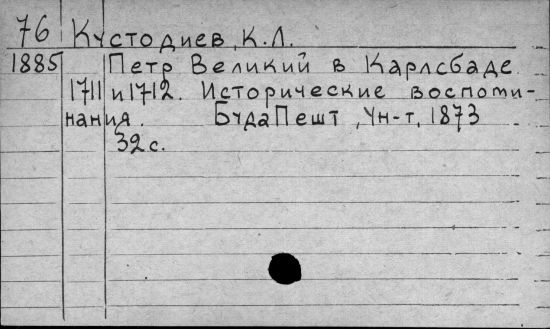 76 Кустодиев, К.Л.
1885 Петр Великий в Карлсбаде
1711 и 1712. Исторические воспоми-
нания. БудаПешт, Ун-т, 1873
32 с.